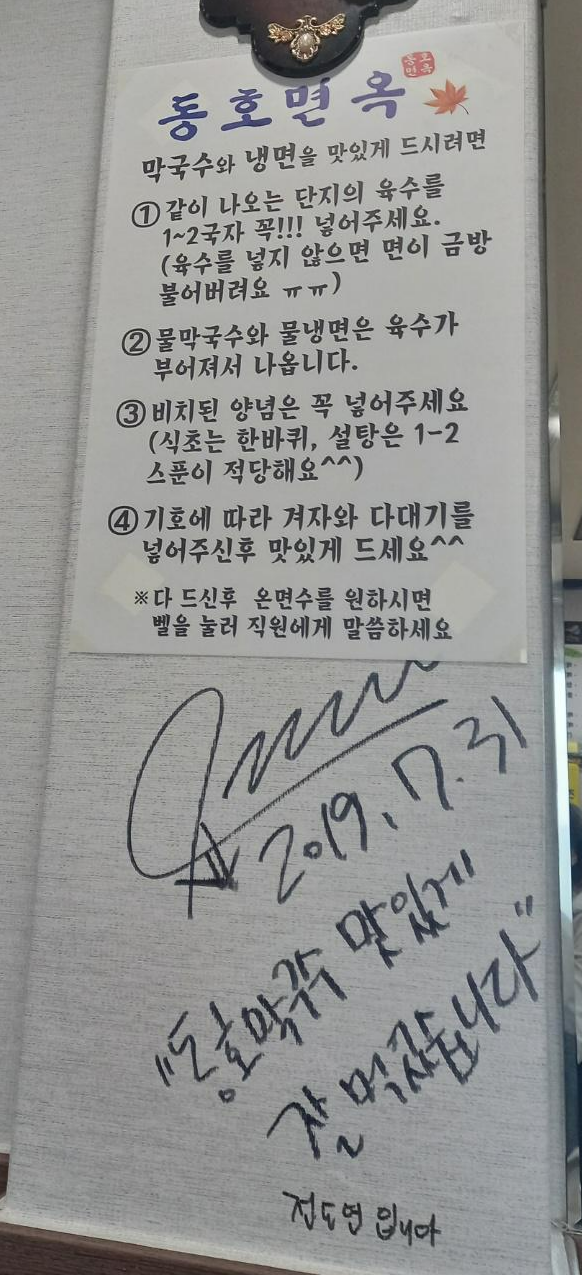 동호면옥
동호
면옥
막국수와 냉면을 맛있게 드시려면
① 같이 나오는 단지의 육수를
1~2국자 꼭!!! 넣어주세요.
(육수를 넣지 않으면 면이 금방
불어버려요 ㅠㅠ)
② 물막국수와 물냉면은 육수가
부어져서 나옵니다.
③ 비치된 양념은 꼭 넣어주세요
(식초는 한바퀴, 설탕은 1-2
스푼이 적당해요^^)
④ 기호에 따라 겨자와 다대기를
넣어주신후 맛있게 드세요^^
※다 드신후 온면수를 원하시면
벨을 눌러 직원에게 말씀하세요
2019. 7. 31
"동호막국수 맛있게"
잘 먹갔습니다"
전도연 입니아